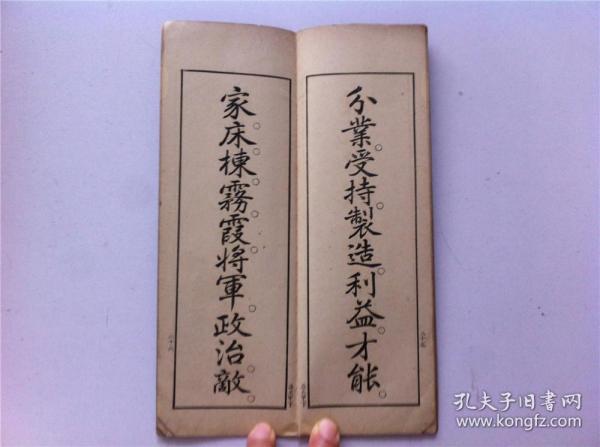 分業。受持。製造。利益。才能。
家。床。棟。霧。霞。将軍。政治。敵。
孔夫子旧书网
www.kongfz.com